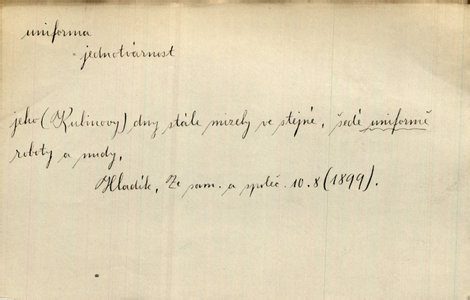 uniforma
jednotvárnost
jeho (Kulinovy) dny stále mizely ve stejné, šedé uniformě
roboty a nudy.
Hladík, Ze sam. a společ. 10.8 (1899).